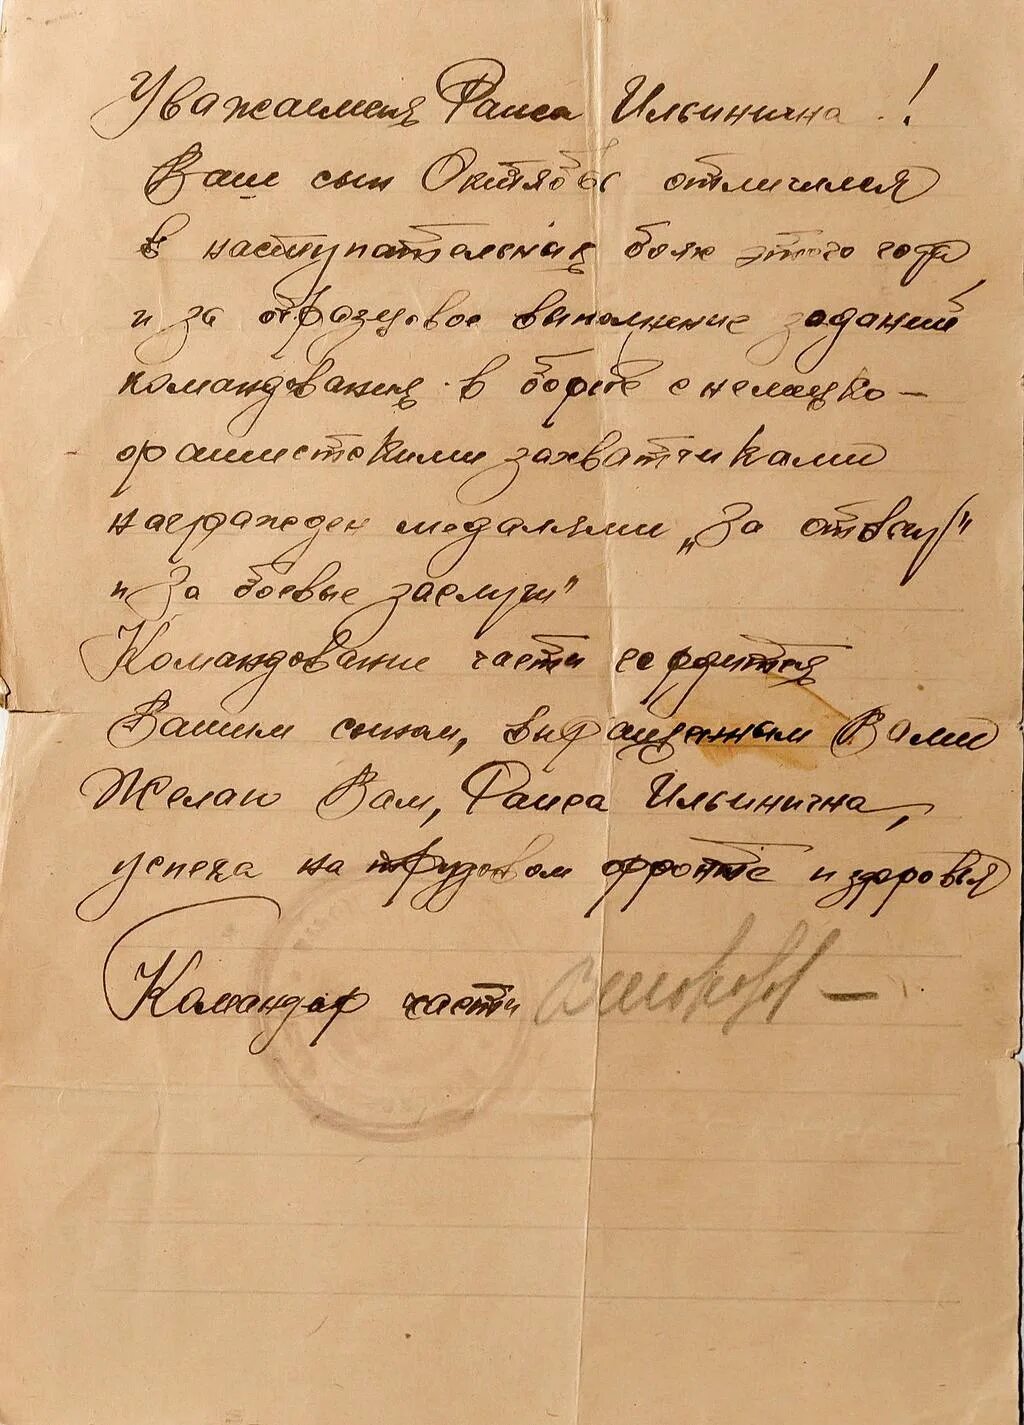 Уважаемая Раиса Ильинична!
Ваш сын Октябрь отличился
в наступательных боях этого года
и за образцовое выполнение заданий
командования в борьбе с немецко-
фашистскими захватчиками
награжден медалями „За отвагу"
и „За боевые заслуги"
Командование части гордится
Вашим сыном, выращенным Вами
Желаю Вам, Раиса Ильинична,
успеха на трудовом фронте и здоровья
Командир части